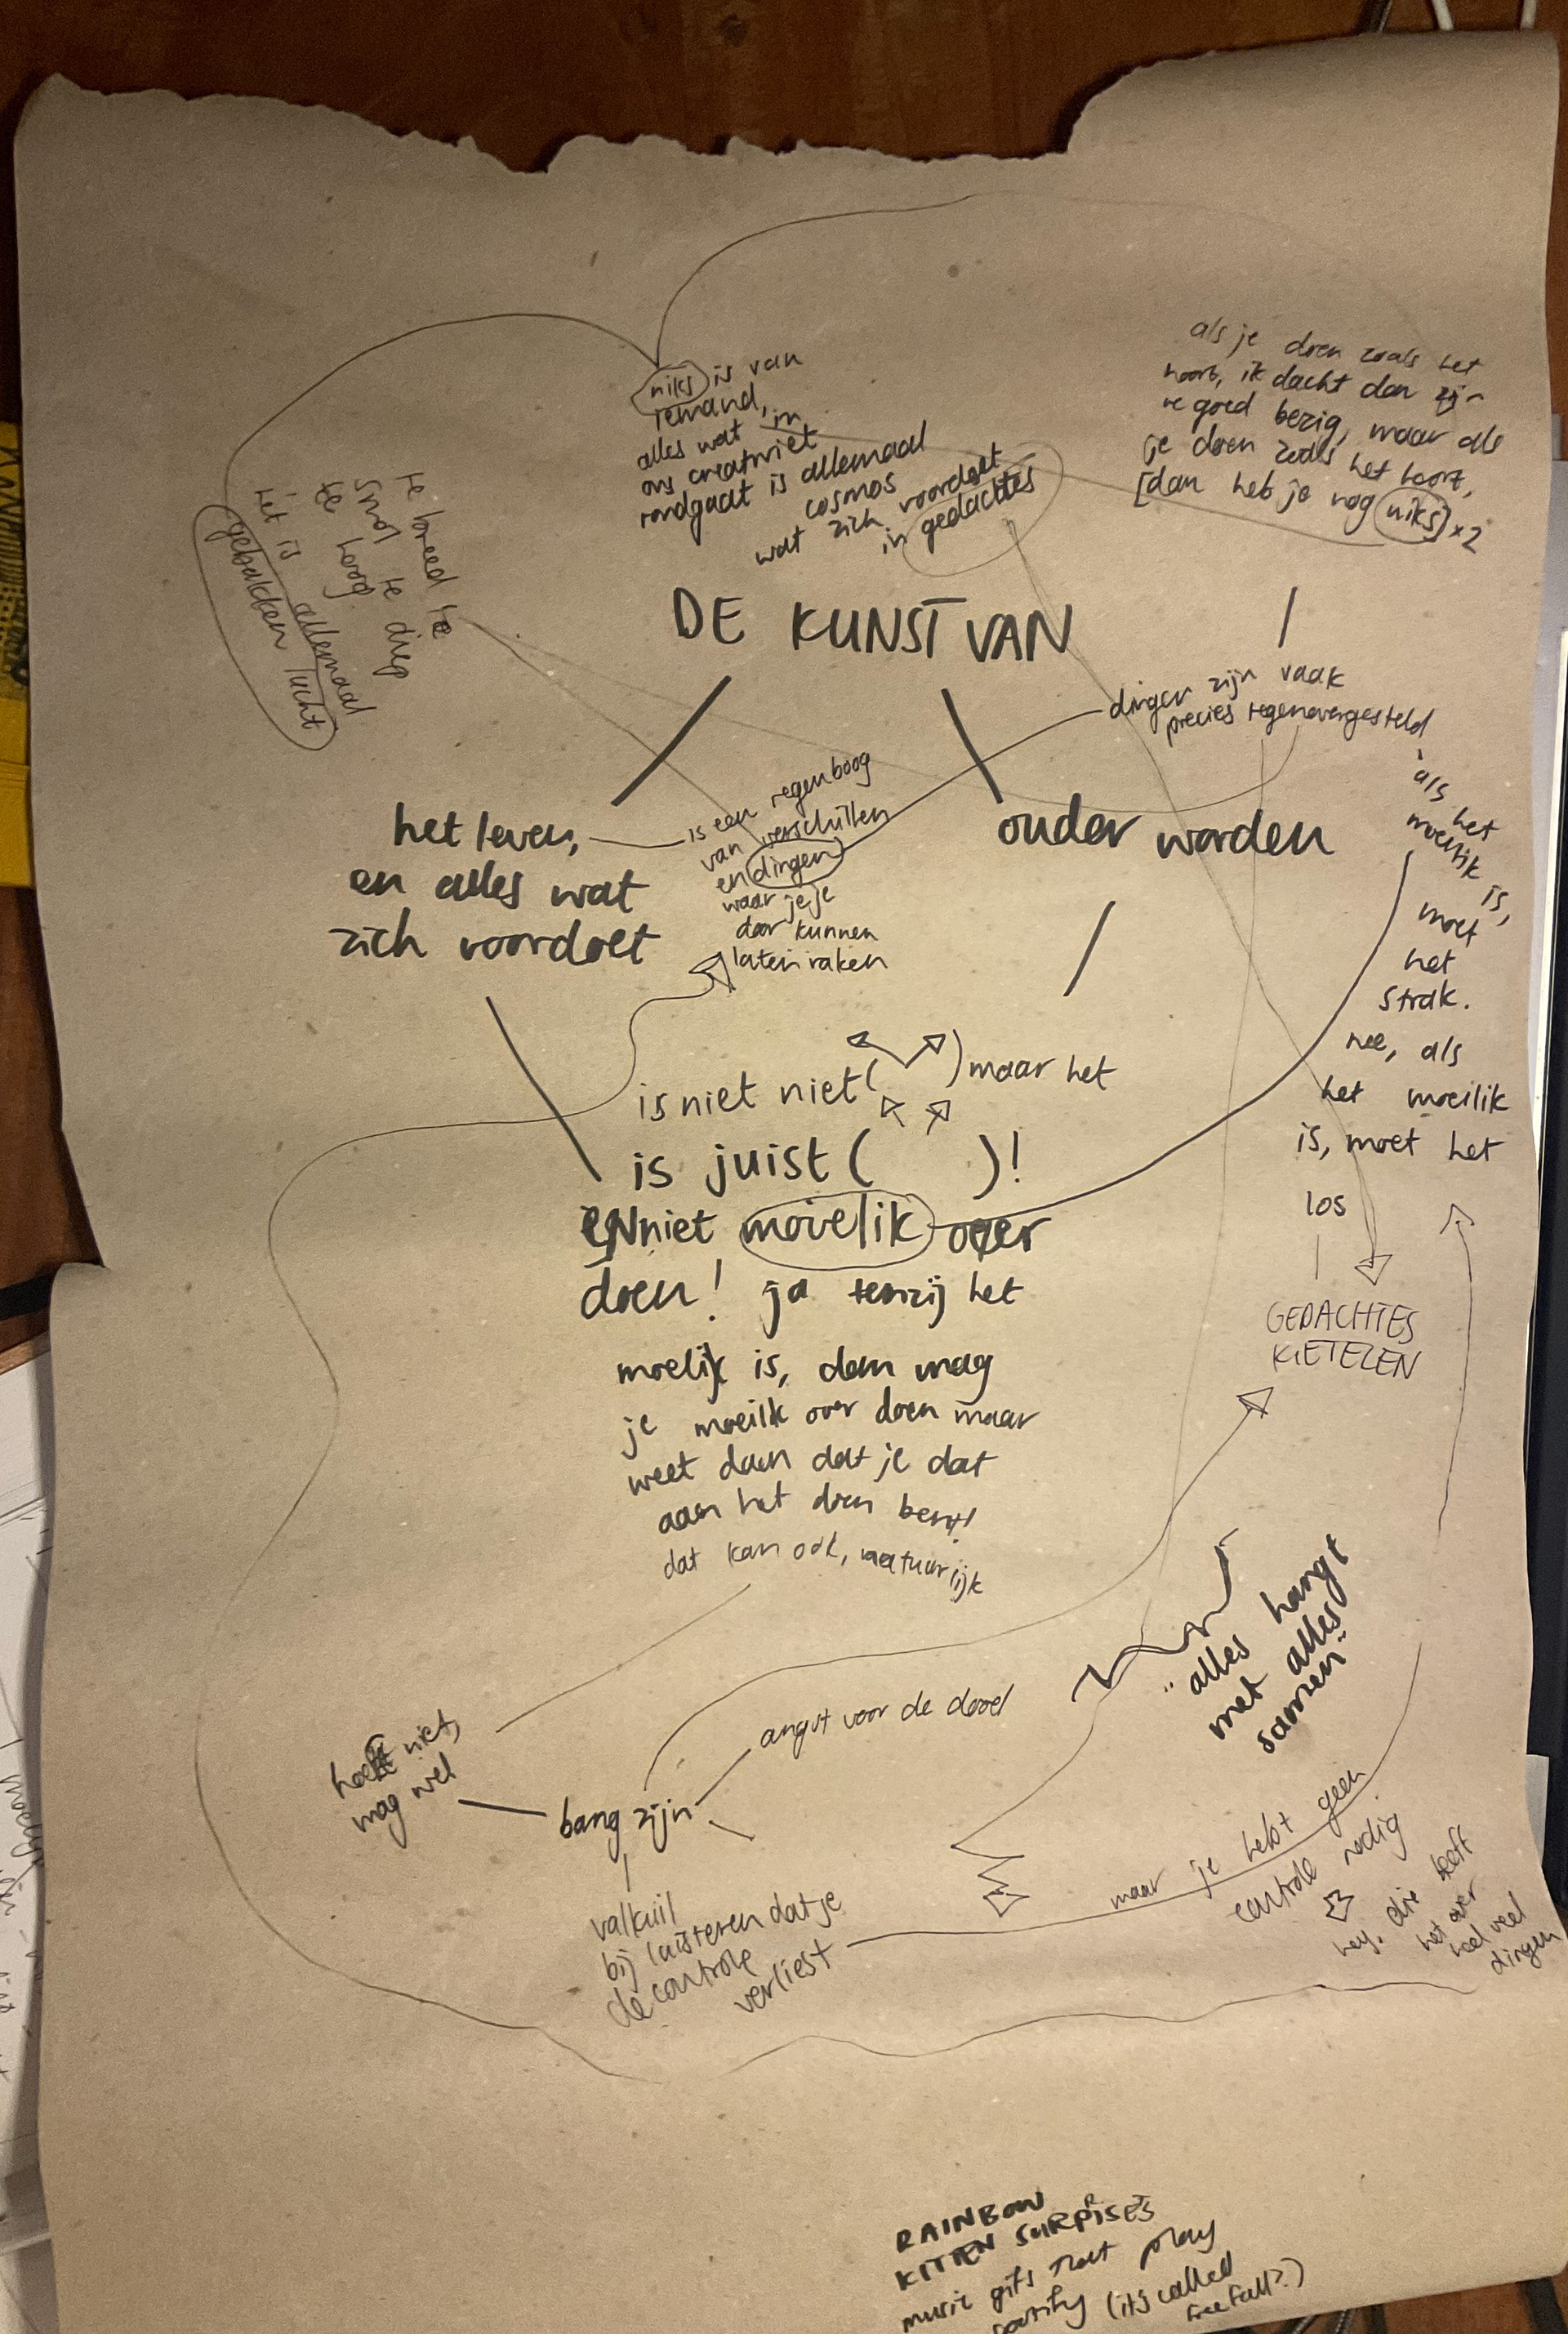 niks is van
iemand,
alles wat in
ons creativiet
rondgaat is allemaal
cosmos
wat zich voordoet
in gedachtes
als je doen zoals het
hoort, ik dacht dan zijn
we goed bezig, maar als
je doen zoals het hoort,
[dan heb je nog niks] x2
te breed te
smal te diep
te hoog
het is allemaal
gebakken lucht
DE KUNST VAN
dingen zijn vaak
precies tegenovergesteld
het leven,
en alles wat
zich voordoet
is een regenboog
van verschillen
en dingen
waar je je
door kunnen
laten raken
ouder worden
als het
moeilik is,
moet
het
strak.
nee, als
het moeilik
is, moet het
los
GEDACHTES
KIETELEN
is niet niet ( ) maar het
is juist ( )!
EN niet moielik over
doen! ja tenzij het
moelijk is, dan mag
je moeilk over doen maar
weet dan dat je dat
aan het doen bent!
dat kan ook, natuurlijk
"alles hangt
met alles
samen"
angst voor de dood
hoeft niet,
mag wel
bang zijn
valkuil
bij luisteren dat je
de controle
verliest
maar je hebt geen
controle nodig
hey, die heeft
het over
heel veel
dingen
RAINBOW
KITTEN SURPRISES
music gifs that play
(its called
freefall?)